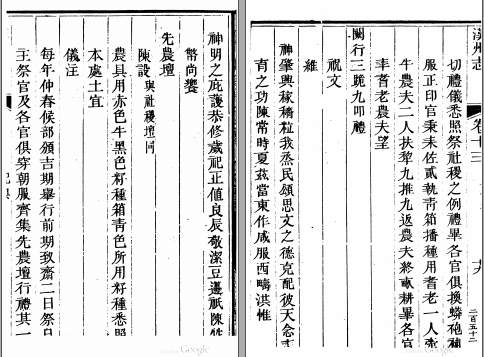 神明之庇護恭修歲祀正值良辰敬潔豆籩祇陳牲
幣尚饗
先農壇
陳設與社稷壇同
農具用赤色牛黑色籽種箱靑色所用籽種悉照
本處土宜
儀注
每年仲春候部頒吉期舉行前期致齋二日祭日
主祭官及各官俱穿朝服齊集先農壇行禮其一
州志
卷十三
二百五十二
切禮儀悉照祭社稷之例禮畢各官俱換蟒袍補
服正印官秉耒佐貳執靑箱播種用耆老一人牽
牛農夫二人扶犂九推九返農夫終畝耕畢各官
率耆老農夫望
闕行三跪九叩禮
祝文
維
神肇興稼穡粒我烝民頌思文之德克配彼天念率
育之功陳常時夏茲當東作咸服西疇洪惟
Google
Google